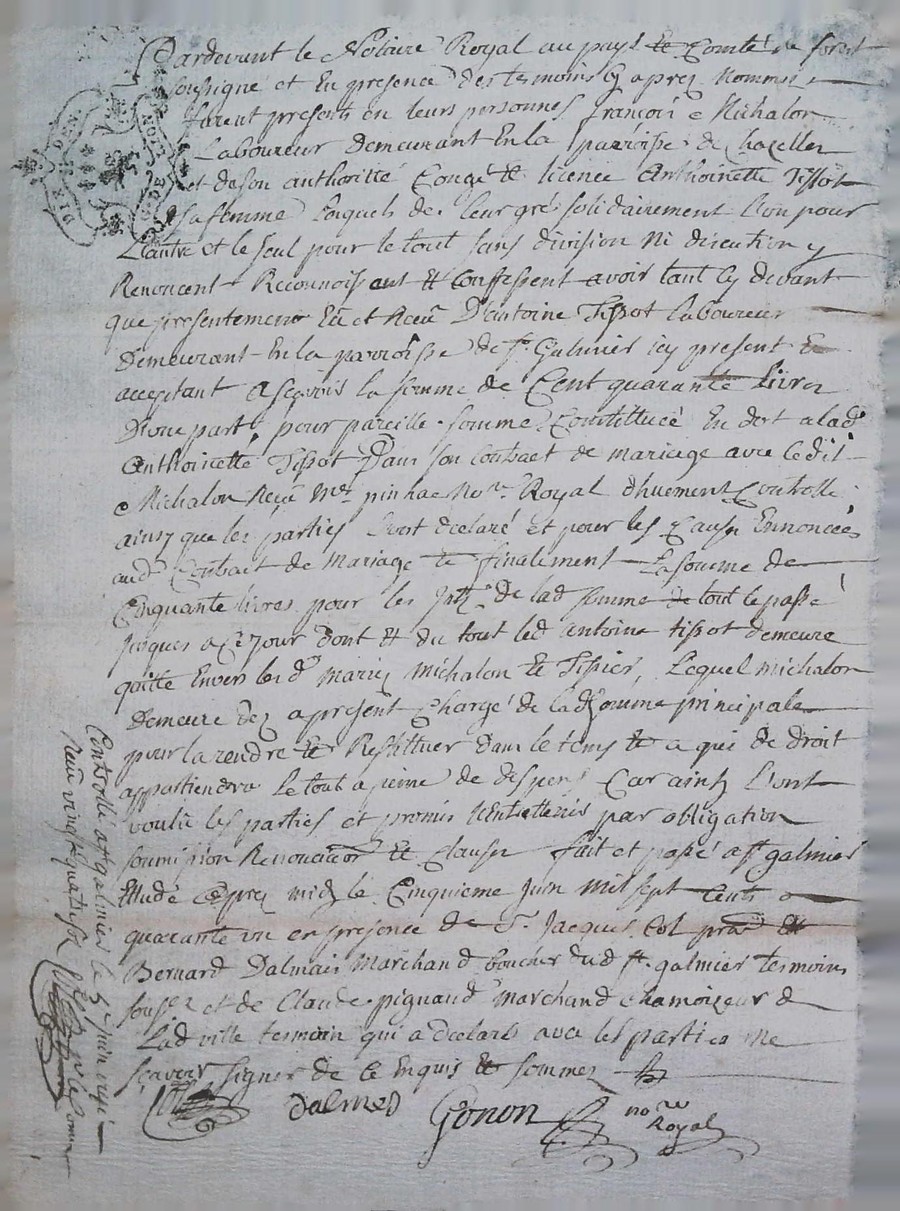 Pardevant le Notaire Royal au pays et Comté de forest
soussigné et En presence des temoins Cy apres Nommés
furent presents en leurs personnes françois Michalon
Laboureur demeurant En la parroisse de Chazelles
et de son authorité Congé et licence Anthoinette Tissot
sa femme Lesquels de leur gré solidairement L'un pour
L'autre et le seul pour le tout sans division Ni discution y
Renoncent Reconnoissent et Confessent avoir tant Cy devant
que presentement Eü et Reçeu D'antoine Tissot Laboureur
Demeurant En la parroisse de St Galmier icy present Et
acceptant Ascavoir la somme de Cent quarante Livres
D'une part, pour pareille somme Constituée En dot a lad
Anthoinette Tissot Dans son Contract de mariage avec ledit
Michalon Reçu Me pinhac Nore Royal Controllé
ainsy que les parties L'ont declaré et pour les Causes Ennoncées
aud Contract de Mariage et finalement La somme de
Cinquante livres pour les de lad somme de tout le passé
jusques a Ce jour Dont Et du tout led antoine tissot demeure
quitte Envers les d mariés Michalon et Tissier, Lequel Michalon
Demeure dez a present Chargé de lad somme principale
pour la rendre et Restituer Dans le tems et a qui de droit
appartiendra Le tout a peine de despens Car ainsy L'ont
voulu les parties et promis L'entretenir par obligation
soumission Renonciaon Et Clauses fait et passé a st galmier
Etude apres midy le Cinquieme juin mil sept Cents
quarante un en presence de Sr Jacques Col et
Bernard Dalmais Marchand boucher dud st galmier temoins
soussez et de Claude pignaud marchand chamoizeur de
Lad ville temoin qui a declaré avec les parties Ne
scavoir signer de Ce Enquis et sommes
Dalmes Gonon nore
Royal
Controllé a st galmier le 5e juin 1741
Reçu vingt quatre sols